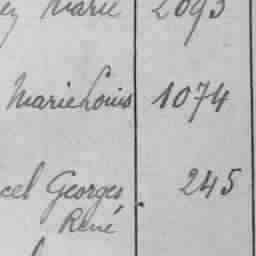 Marie 2093
Marie Louis 1074
cel Georges 245
René